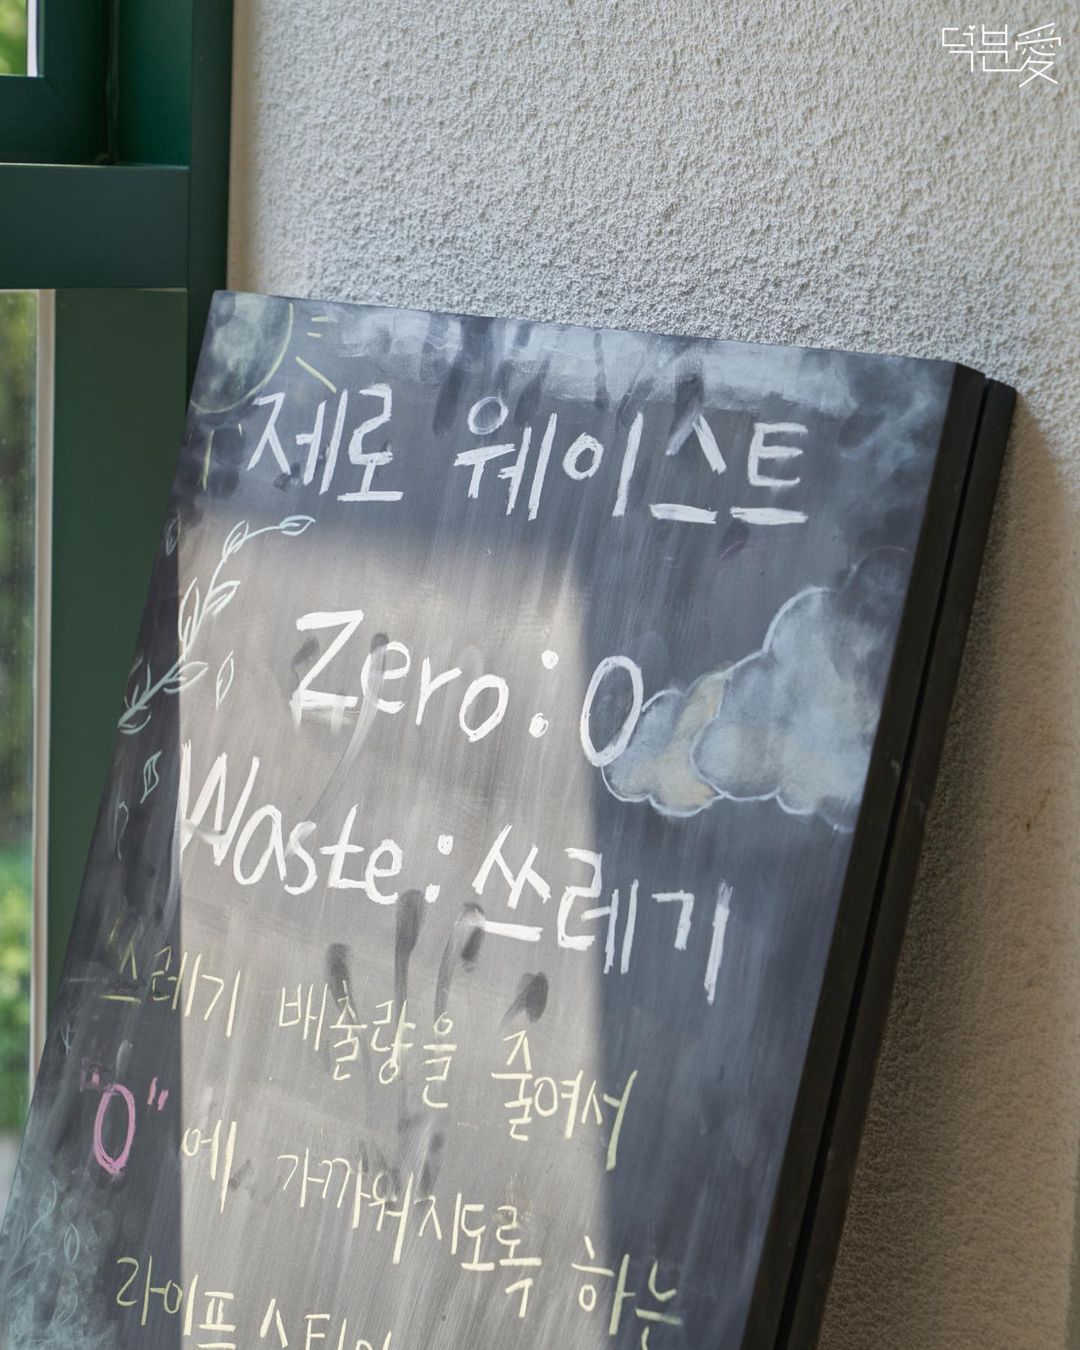 덕분愛
제로 웨이스트
Zero : 0
Waste : 쓰레기
쓰레기 배출량을 줄여서
"0"에 가까워지도록 하는
라이프스타일